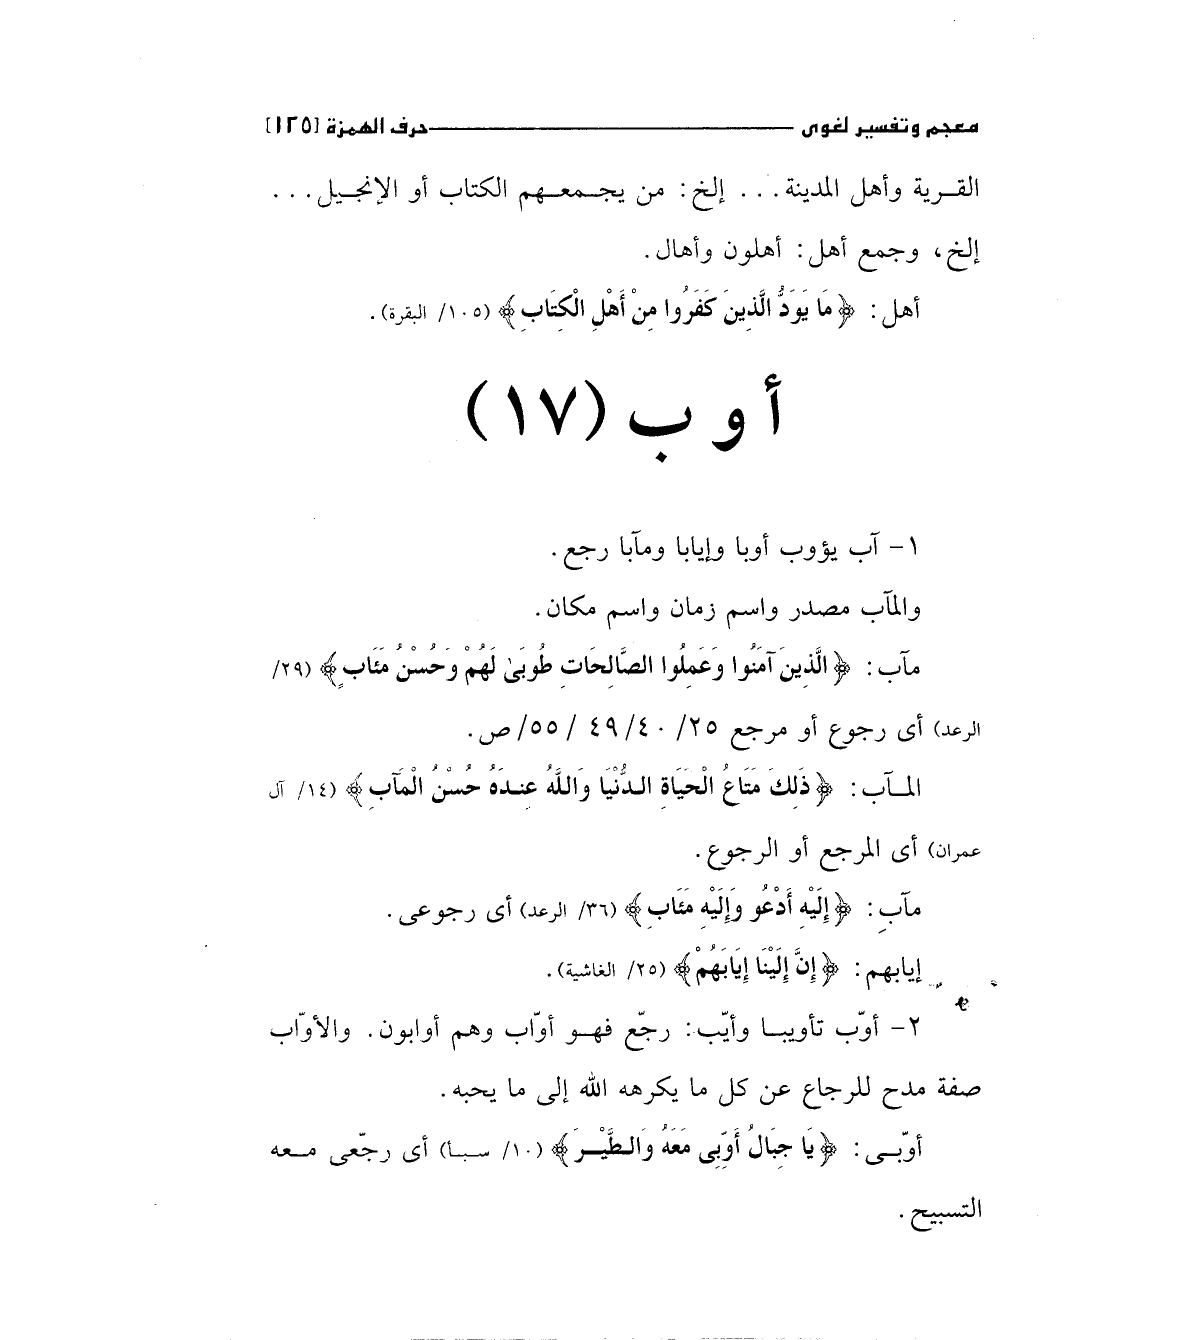 معجم وتفسير لغوى ــــــ حرف الهمزة [١٢٥]
القرية وأهل المدينة... إلخ: من يجمعهم الكتاب أو الإنجيل...
إلخ، وجمع أهل: أهلون وأهال.
أهل: ﴿مَا يَوَدُّ الَّذِينَ كَفَرُوا مِنْ أَهْلِ الْكِتَابِ﴾ (١٠٥/ البقرة).
أ و ب (١٧)
١- آب يؤوب أوبا وإيابا ومآبا رجع.
والمآب مصدر واسم زمان واسم مكان.
مآب: ﴿الَّذِينَ آمَنُوا وَعَمِلُوا الصَّالِحَاتِ طُوبَىٰ لَهُمْ وَحُسْنُ مَئَابٍ﴾ (٢٩/
الرعد) أى رجوع أو مرجع ٢٥/ ٤٠/ ٤٩ / ٥٥/ ص.
المآب: ﴿ذَلِكَ مَتَاعُ الْحَيَاةِ الدُّنْيَا وَاللَّهُ عِندَهُ حُسْنُ الْمَآبِ﴾ (١٤/ آل
عمران) أى المرجع أو الرجوع.
مآبِ: ﴿إِلَيْهِ أَدْعُو وَإِلَيْهِ مَئَابِ﴾ (٣٦/ الرعد) أى رجوعى.
إيابهم: ﴿إِنَّ إِلَيْنَا إِيَابَهُمْ﴾ (٢٥/ الغاشية).
٢- أوّب تأويبا وأيّب: رجّع فهو أوّاب وهم أوابون. والأوّاب
صفة مدح للرجاع عن كل ما يكرهه الله إلى ما يحبه.
أوّبى: ﴿يَا جِبَالُ أَوِّبِى مَعَهُ وَالطَّيْرَ﴾ (١٠/ سبأ) أى رجّعى معه
التسبيح.